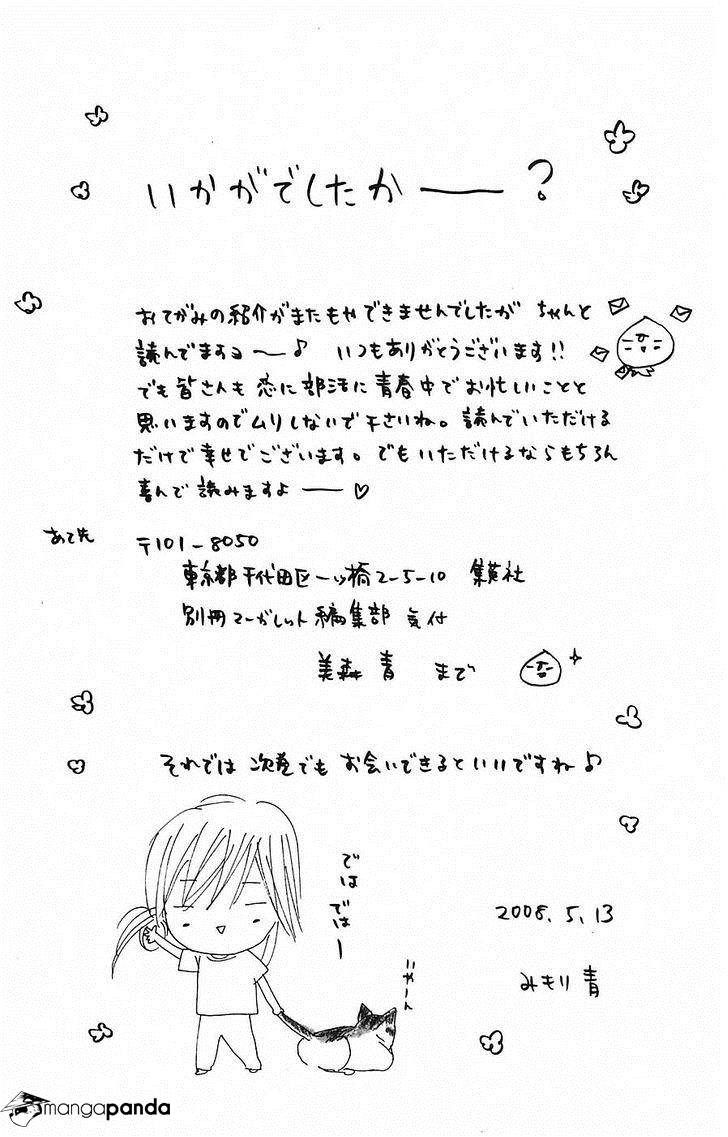 いかがでしたかー?
おてがみの紹介がまたもやできませんでしたが ちゃんと
読んでますョ〜♪ いつもありがとうございます!!
でも皆さんも 恋に部活に青春中でお忙しいことと
思いますのでムリしないで下さいね。読んでいただける
だけで幸せでございます。でもいただけるならもちろん
喜んで読みますよー♡
あて先 〒101-8050
東京都千代田区一ツ橋2-5-10 集英社
別冊マーガレット編集部 気付
美森 青 まで
それでは 次巻でも お会いできるといいですね♪
ではではー
いやーん
2008.5.13
みもり 青
mangapanda